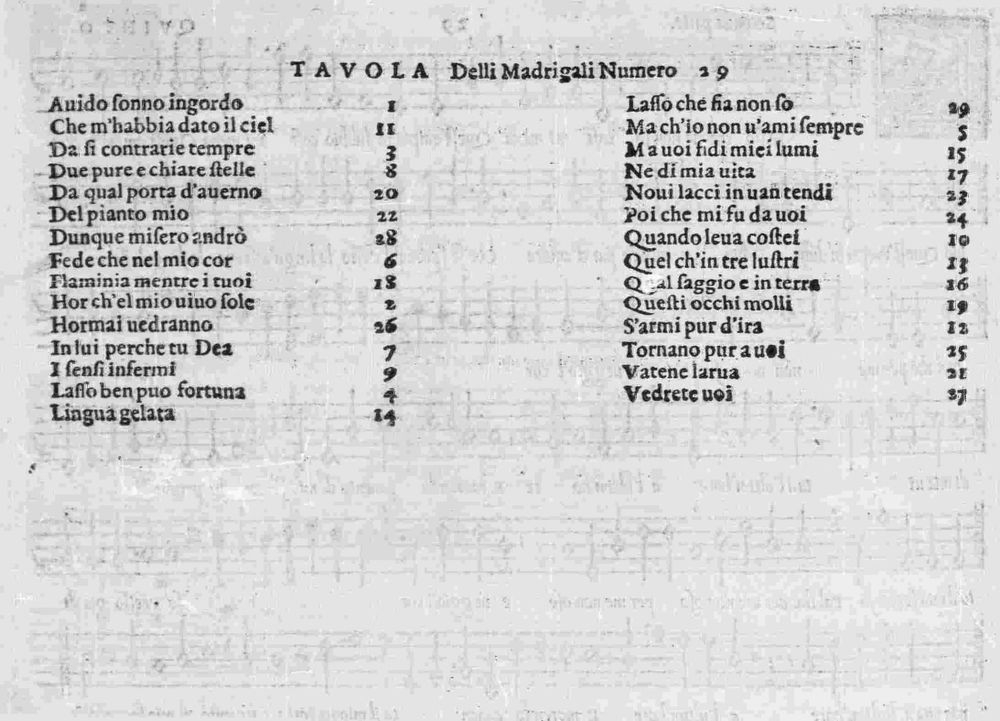 TAVOLA Delli Madrigali Numero 29
Auido ſonno ingordo 1
Che m'habbia dato il ciel 11
Da ſi contrarie tempre 3
Due pure e chiare ſtelle 8
Da qual porta d'auerno 20
Del pianto mio 22
Dunque miſero andrò 28
Fede che nel mio cor 6
Flaminia mentre i tuoi 18
Hor ch'el mio uiuo ſole 2
Hormai uedranno 26
In lui perche tu Dea 7
I ſenſi infermi 9
Laſſo ben puo fortuna 4
Lingua gelata 14
Laſſo che fia non ſo 29
Ma ch'io non u'ami ſempre 5
Ma uoi fidi miei lumi 15
Ne di mia uita 17
Noui lacci in uan tendi 23
Poi che mi fu da uoi 24
Quando leua coſtei 10
Quel ch'in tre luſtri 13
Qual ſaggio e in terra 16
Queſti occhi molli 19
S'armi pur d'ira 12
Tornano pur a uoi 25
Vatene larua 21
Vedrete uoi 27